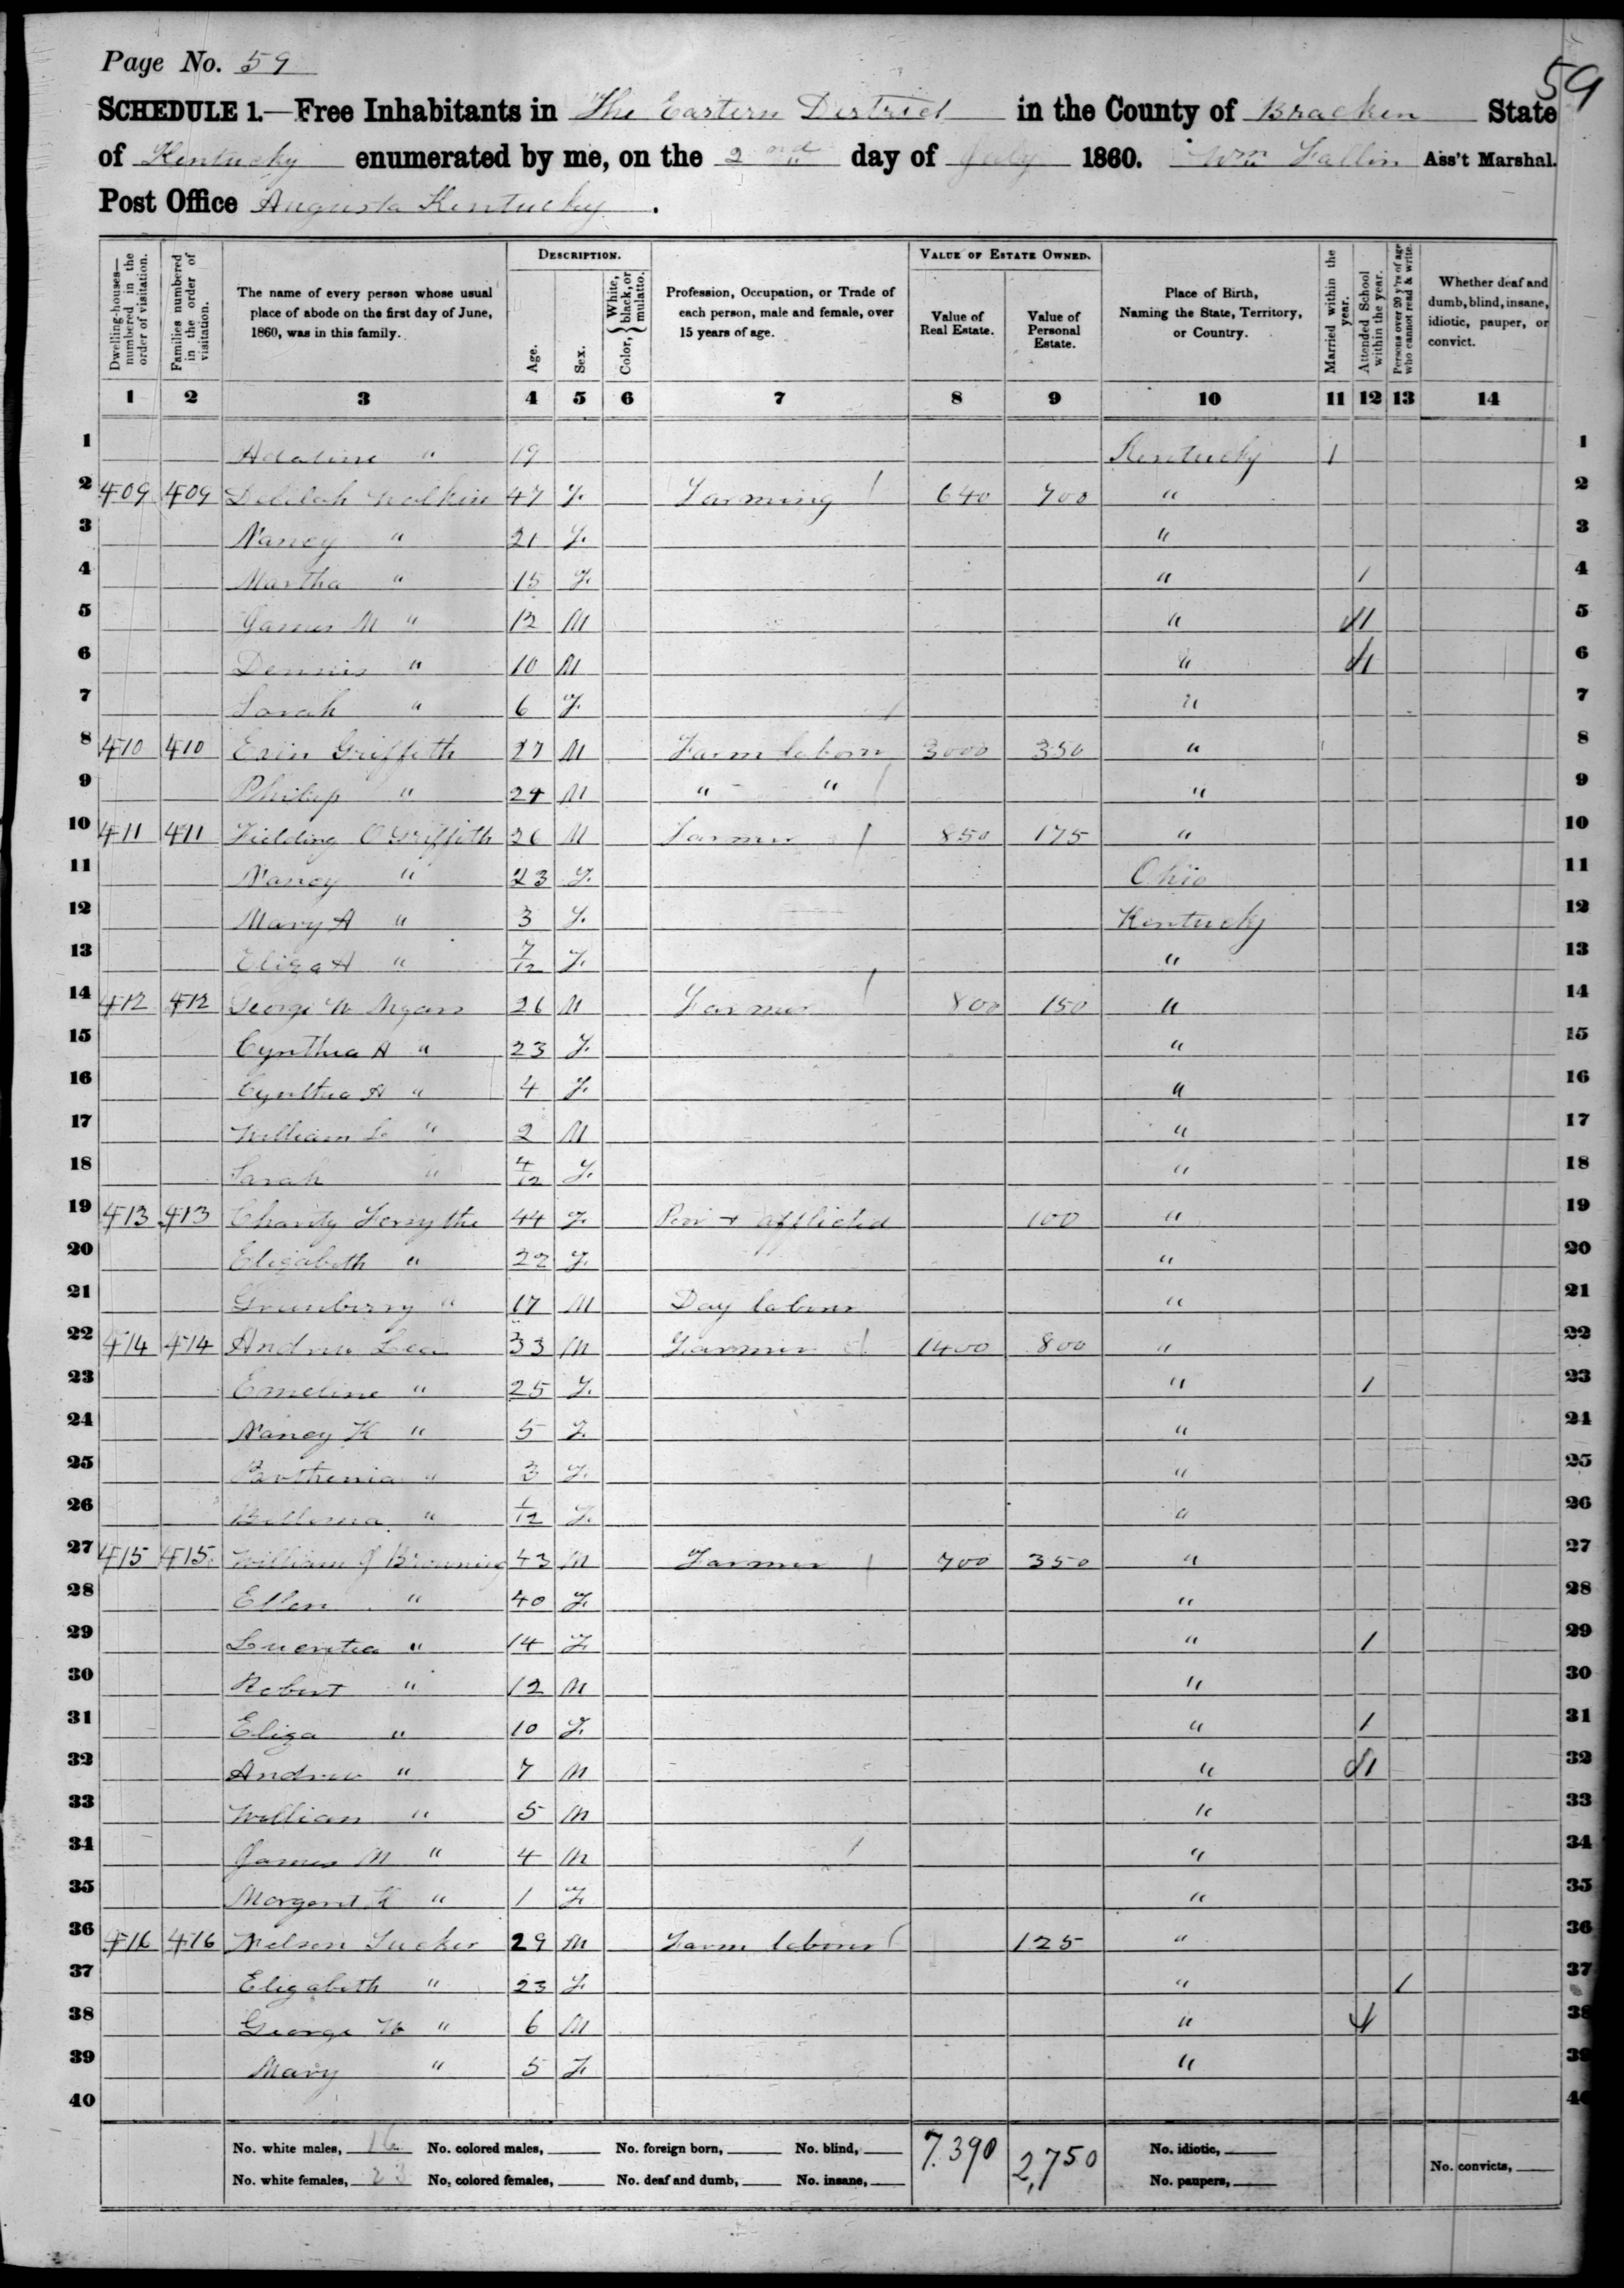 Page No. 59
59
SCHEDULE 1.—Free Inhabitants in The Eastern District in the County of Bracken State
of Kentucky enumerated by me, on the 2nd day of July 1860. Wm Fallin Ass't Marshal.
Post Office Augusta Kentucky.
Dwelling-houses—numbered in the order of visitation. Families numbered in the order of visitation. The name of every person whose usual place of abode on the first day of June, 1860, was in this family. DESCRIPTION. Age. Sex. Color, { White, black, or mulatto. Profession, Occupation, or Trade of each person, male and female, over 15 years of age. VALUE OF ESTATE OWNED. Value of Real Estate. Value of Personal Estate. Place of Birth, Naming the State, Territory, or Country. Married within the year. Attended School within the year. Persons over 20 y'rs of age who cannot read & write. Whether deaf and dumb, blind, insane, idiotic, pauper, or convict.
1 2 3 4 5 6 7 8 9 10 11 12 13 14
1 Adaline " 19 Kentucky 1 1
2 409 409 Delilah 47 F. Farming 640 700 " 2
3 Nancy " 21 F. " 3
4 Martha " 15 F. " 1 4
5 James M " 12 M " 1 5
6 Dennis " 10 M " 1 6
7 Sarah " 6 F. " 7
8 410 410 Griffith 27 M Farm laborer 3000 350 " 8
9 Philip " 24 M " " " 9
10 411 411 Fielding O Griffith 26 M Farmer 850 175 " 10
11 Nancy " 23 F. Ohio 11
12 Mary A " 3 F. Kentucky 12
13 Eliza A " 7/12 F. " 13
14 412 412 George W Myars 26 M Farmer 800 150 " 14
15 Cynthia A " 23 F. " 15
16 Cynthia A " 4 F. " 16
17 William L. " 2 M " 17
18 Sarah " 4/12 F. " 18
19 413 413 Charity Forsythe 44 F. Poor + afflicted 100 " 19
20 Elizabeth " 22 F. " 20
21 Greenberry " 17 M Day laborer " 21
22 414 414 Andrew Lea 33 M Farmer 1400 800 " 22
23 Emeline " 25 F. " 1 23
24 Nancy K " 5 F. " 24
25 Parthenia " 3 F. " 25
26 " 1/12 F. " 26
27 415 415 William J Browning 43 M Farmer 700 350 " 27
28 Ellen " 40 F. " 28
29 Lucretia " 14 F. " 1 29
30 Robert " 12 M " 30
31 Eliza " 10 F. " 1 31
32 Andrew " 7 M " 1 32
33 William " 5 M " 33
34 James M " 4 M " 34
35 Margaret " 1 F. " 35
36 416 416 Nelson Tucker 29 M Farm laborer 125 " 36
37 Elizabeth " 23 F. " 1 37
38 George W " 6 M " 38
39 Mary " 5 F. " 39
40 40
No. white males, 16 No. colored males, No. foreign born, No. blind, 7.390 2,750 No. idiotic,
No. white females, 23 No. colored females, No. deaf and dumb, No. insane, No. paupers, No. convicts,